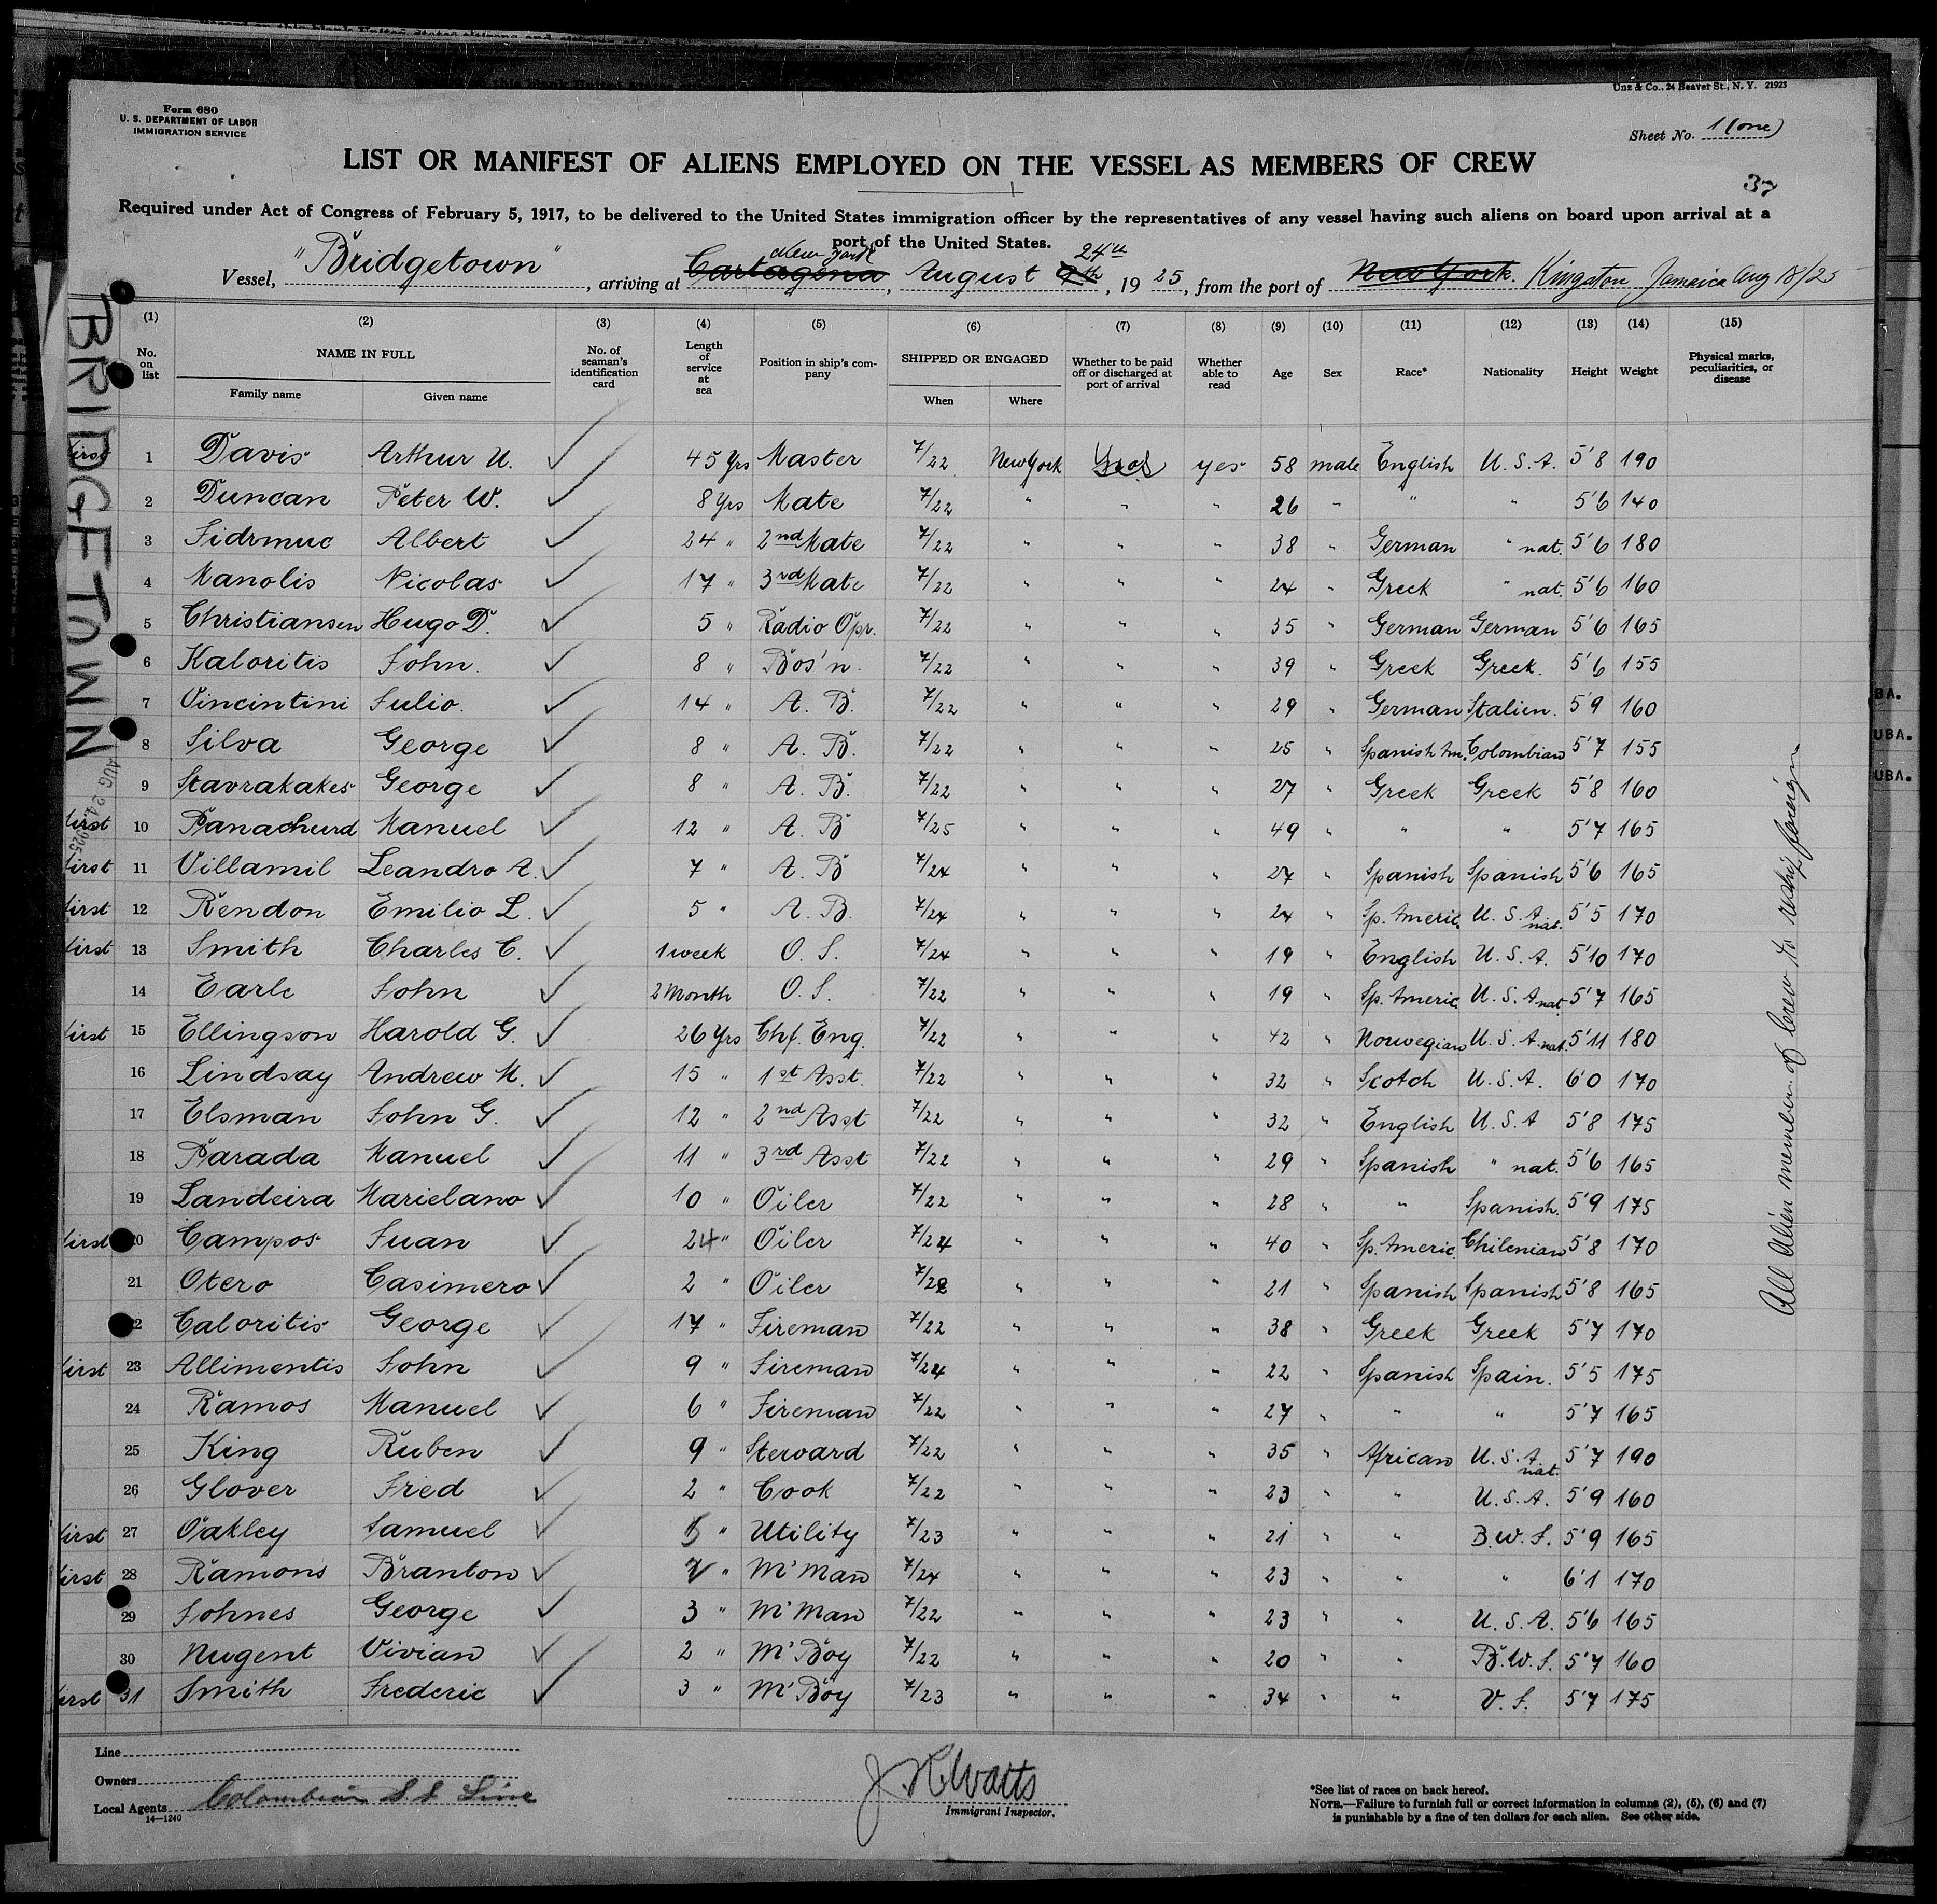 Form 680
U. S. DEPARTMENT OF LABOR
IMMIGRATION SERVICE
Unz & Co., 24 Beaver St., N. Y. 21923
Sheet No. 1 (one)
LIST OR MANIFEST OF ALIENS EMPLOYED ON THE VESSEL AS MEMBERS OF CREW
37
Required under Act of Congress of February 5, 1917, to be delivered to the United States immigration officer by the representatives of any vessel having such aliens on board upon arrival at a
port of the United States.
Vessel, "Bridgetown", arriving at Cartagena New York, August 9th 24th, 1925, from the port of New York. Kingston Jamaica Aug 18/25
BRIDGETOWN
AUG 24 1925
(1) (2) (3) (4) (5) (6) (7) (8) (9) (10) (11) (12) (13) (14) (15)
No. on list NAME IN FULL Family name Given name No. of seaman's identification card Length of service at sea Position in ship's company SHIPPED OR ENGAGED When Where Whether to be paid off or discharged at port of arrival Whether able to read Age Sex Race* Nationality Height Weight Physical marks, peculiarities, or disease
first 1 Davis Arthur U. ✓ 45 Yrs Master 7/22 New York yes 58 male English U.S.A. 5'8 190
2 Duncan Peter W. ✓ 8 Yrs Mate 7/22 " " " 26 " " " 5'6 140
3 Sidrmuc Albert ✓ 24 " 2nd Mate 7/22 " " " 38 " German " nat. 5'6 180
4 Manolis Nicolas ✓ 17 " 3rd Mate 7/22 " " " 24 " Greek " nat. 5'6 160
5 Christiansen Hugo D. ✓ 5 " Radio Opr. 7/22 " " " 35 " German German 5'6 165
6 Kaloritis John. ✓ 8 " Bos'n. 7/22 " " " 39 " Greek Greek. 5'6 155
7 Vincintini Julio. ✓ 14 " A. B. 7/22 " " " 29 " German Italien. 5'9 160
8 Silva George ✓ 8 " A. B. 7/22 " " " 25 " Spanish Am. Colombian 5'7 155
9 Stavrakakes George ✓ 8 " A. B. 7/22 " " " 27 " Greek Greek 5'8 160
first 10 Panachurd Manuel ✓ 12 " A. B 7/25 " " " 49 " " " 5'7 165
first 11 Villamil Leandro A. ✓ 7 " A. B 7/24 " " " 27 " Spanish Spanish 5'6 165
first 12 Rendon Emilio L. ✓ 5 " A. B. 7/24 " " " 24 " Sp. Americ. U.S.A. nat. 5'5 170
first 13 Smith Charles C. ✓ 1 week O. S. 7/24 " " " 19 " English U.S.A. 5'10 170
14 Earle John ✓ 2 Month O. S. 7/22 " " " 19 " Sp. Americ. U.S.A nat. 5'7 165
first 15 Ellingson Harold G. ✓ 26 Yrs Chf. Eng. 7/22 " " " 42 " Norwegian U.S.A. nat. 5'11 180
16 Lindsay Andrew M. ✓ 15 " 1st Asst. 7/22 " " " 32 " Scotch U.S.A. 6'0 170
17 Elsman John G. ✓ 12 " 2nd Asst 7/22 " " " 32 " English U.S.A 5'8 175
18 Parada Manuel ✓ 11 " 3rd Asst 7/22 " " " 29 " Spanish " nat. 5'6 165
19 Landeira Marielano ✓ 10 " Oiler 7/22 " " " 28 " " Spanish. 5'9 175
first 20 Campos Juan ✓ 24 " Oiler 7/24 " " " 40 " Sp. Americ. Chilenian 5'8 170
21 Otero Casimero ✓ 2 " Oiler 7/22 " " " 21 " Spanish Spanish 5'8 165
22 Caloritis George ✓ 17 " Fireman 7/22 " " " 38 " Greek Greek 5'7 170
first 23 Allimentis John ✓ 9 " Fireman 7/24 " " " 22 " Spanish Spain. 5'5 175
24 Ramos Manuel ✓ 6 " Fireman 7/22 " " " 27 " " " 5'7 165
25 King Ruben ✓ 9 " Steward 7/22 " " " 35 " African U.S.A. nat. 5'7 190
26 Glover Fred ✓ 2 " Cook 7/22 " " " 23 " " U.S.A. 5'9 160
first 27 Oakley Samuel ✓ " Utility 7/23 " " " 21 " " B.W.I. 5'9 165
first 28 Ramons Branton ✓ " M'Man 7/24 " " " 23 " " " 6'1 170
29 Johnes George ✓ 3 " M'Man 7/22 " " " 23 " " U.S.A. 5'6 165
30 Nugent Vivian ✓ 2 " M'Boy 7/22 " " " 20 " " B.W.I. 5'7 160
first 31 Smith Frederic ✓ 3 " M'Boy 7/23 " " " 34 " " V.I. 5'7 175
All Alien members of Crew to reship foreign
BA.
UBA.
UBA.
Line
Owners
Local Agents Colombian S.S. Line
14—1240
J. H. Watts
Immigrant Inspector.
*See list of races on back hereof.
NOTE.—Failure to furnish full or correct information in columns (2), (5), (6) and (7)
is punishable by a fine of ten dollars for each alien. See other side.